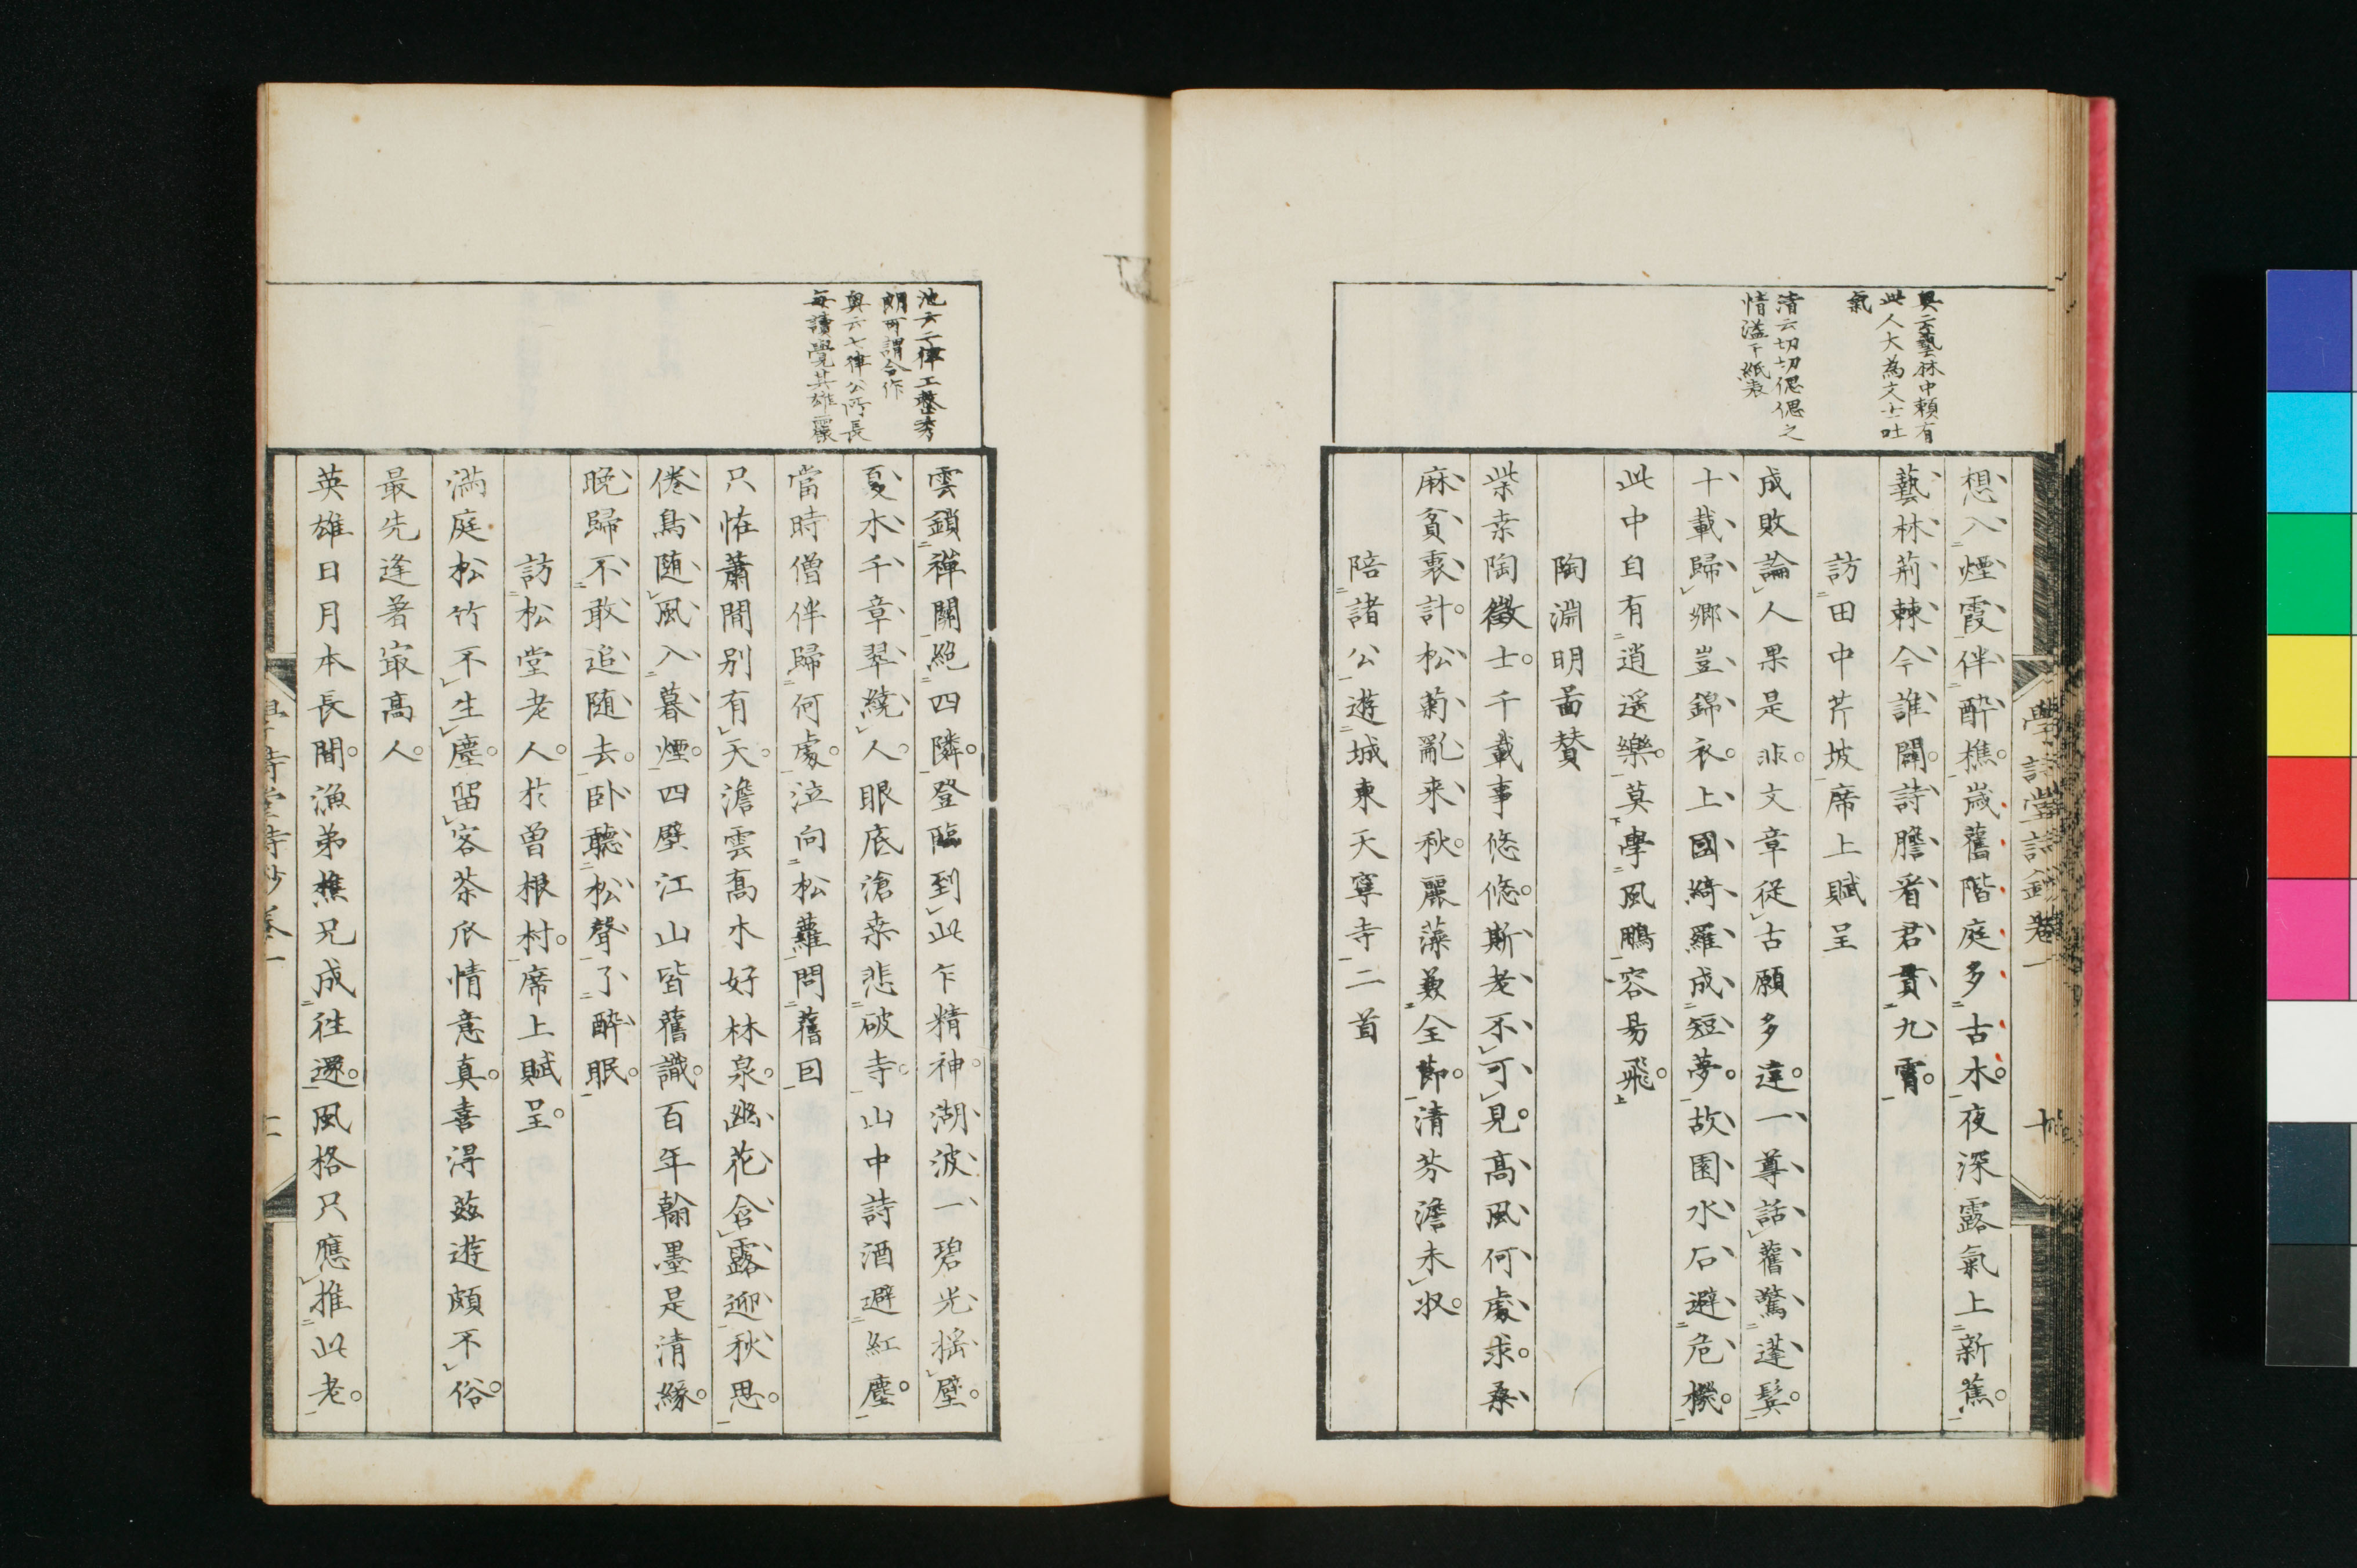 奥云藝林中頼有
此人大為文士吐
氣
清云切切偲偲之
情溢于紙表
想入煙霞伴醉樵歳舊階庭多古木夜深露氣上新蕉
藝林荊棘今誰闢詩膽看君貫九霄
訪田中芹坡席上賦呈
成敗論人果是非文章従古願多違一尊話舊驚蓬鬂
十載歸鄉豈錦衣上國綺羅成短夢故園水石避危機
此中自有逍遥樂莫學風鵬容易飛
陶淵明畵賛
柴桒陶徵士千載事悠悠斯老不可見髙風何處求桑
麻貧裏計松菊亂来秋麗藻兼全節清芬澹未収
陪諸公遊城東天寧寺二首
學詩堂詩鈔卷一
十
池云二律工整秀
朗可謂合作
奥云七律公所長
毎讀覺其雄麗
雲鎖禅關絶四隣登臨到此乍精神湖波一碧光揺壁
夏木千章翠繞人眼底滄桒悲破寺山中詩酒避紅塵
當時僧伴歸何處泣向松蘿問舊因
只恠蕭閒別有天澹雲髙木好林泉幽花含露迎秋思
倦鳥随風入暮煙四壁江山皆舊識百年翰墨是清緣
晚歸不敢追随去卧聽松聲了醉眠
訪松堂老人於曽根村席上賦呈
満庭松竹不生塵留客茶瓜情意真喜淂茲遊頗不俗
最先逢著㝡髙人
英雄日月本長閒漁弟樵兄成徃還風格只應推此老
學詩堂詩鈔卷一